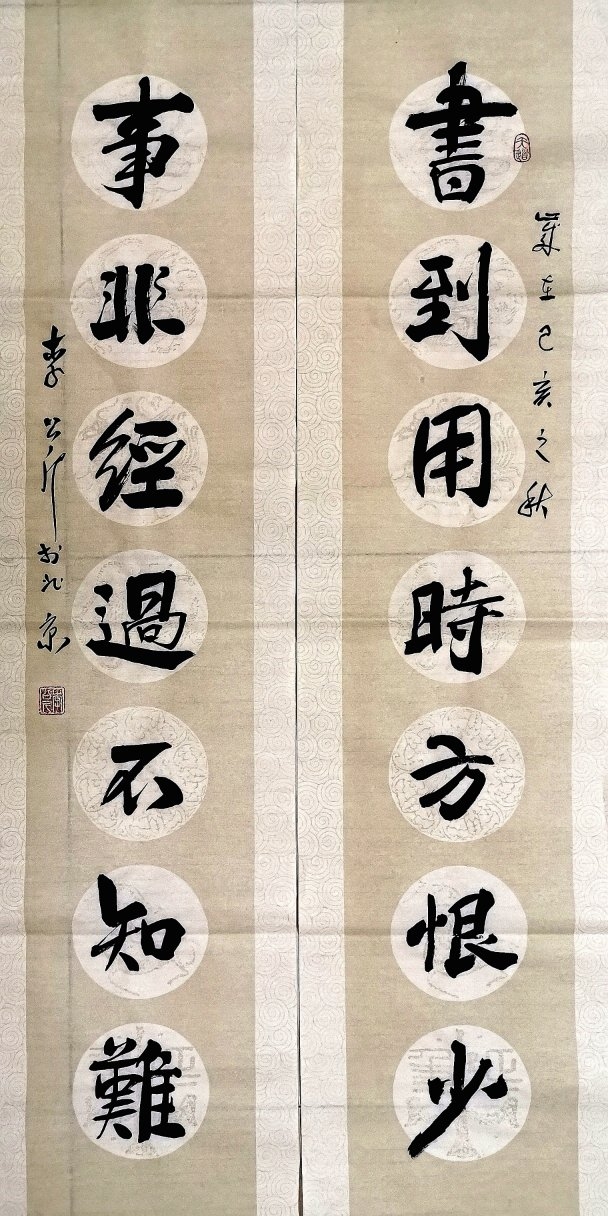 書到用時方恨少
歲在己亥之秋
事非經過不知難
李公片於北京